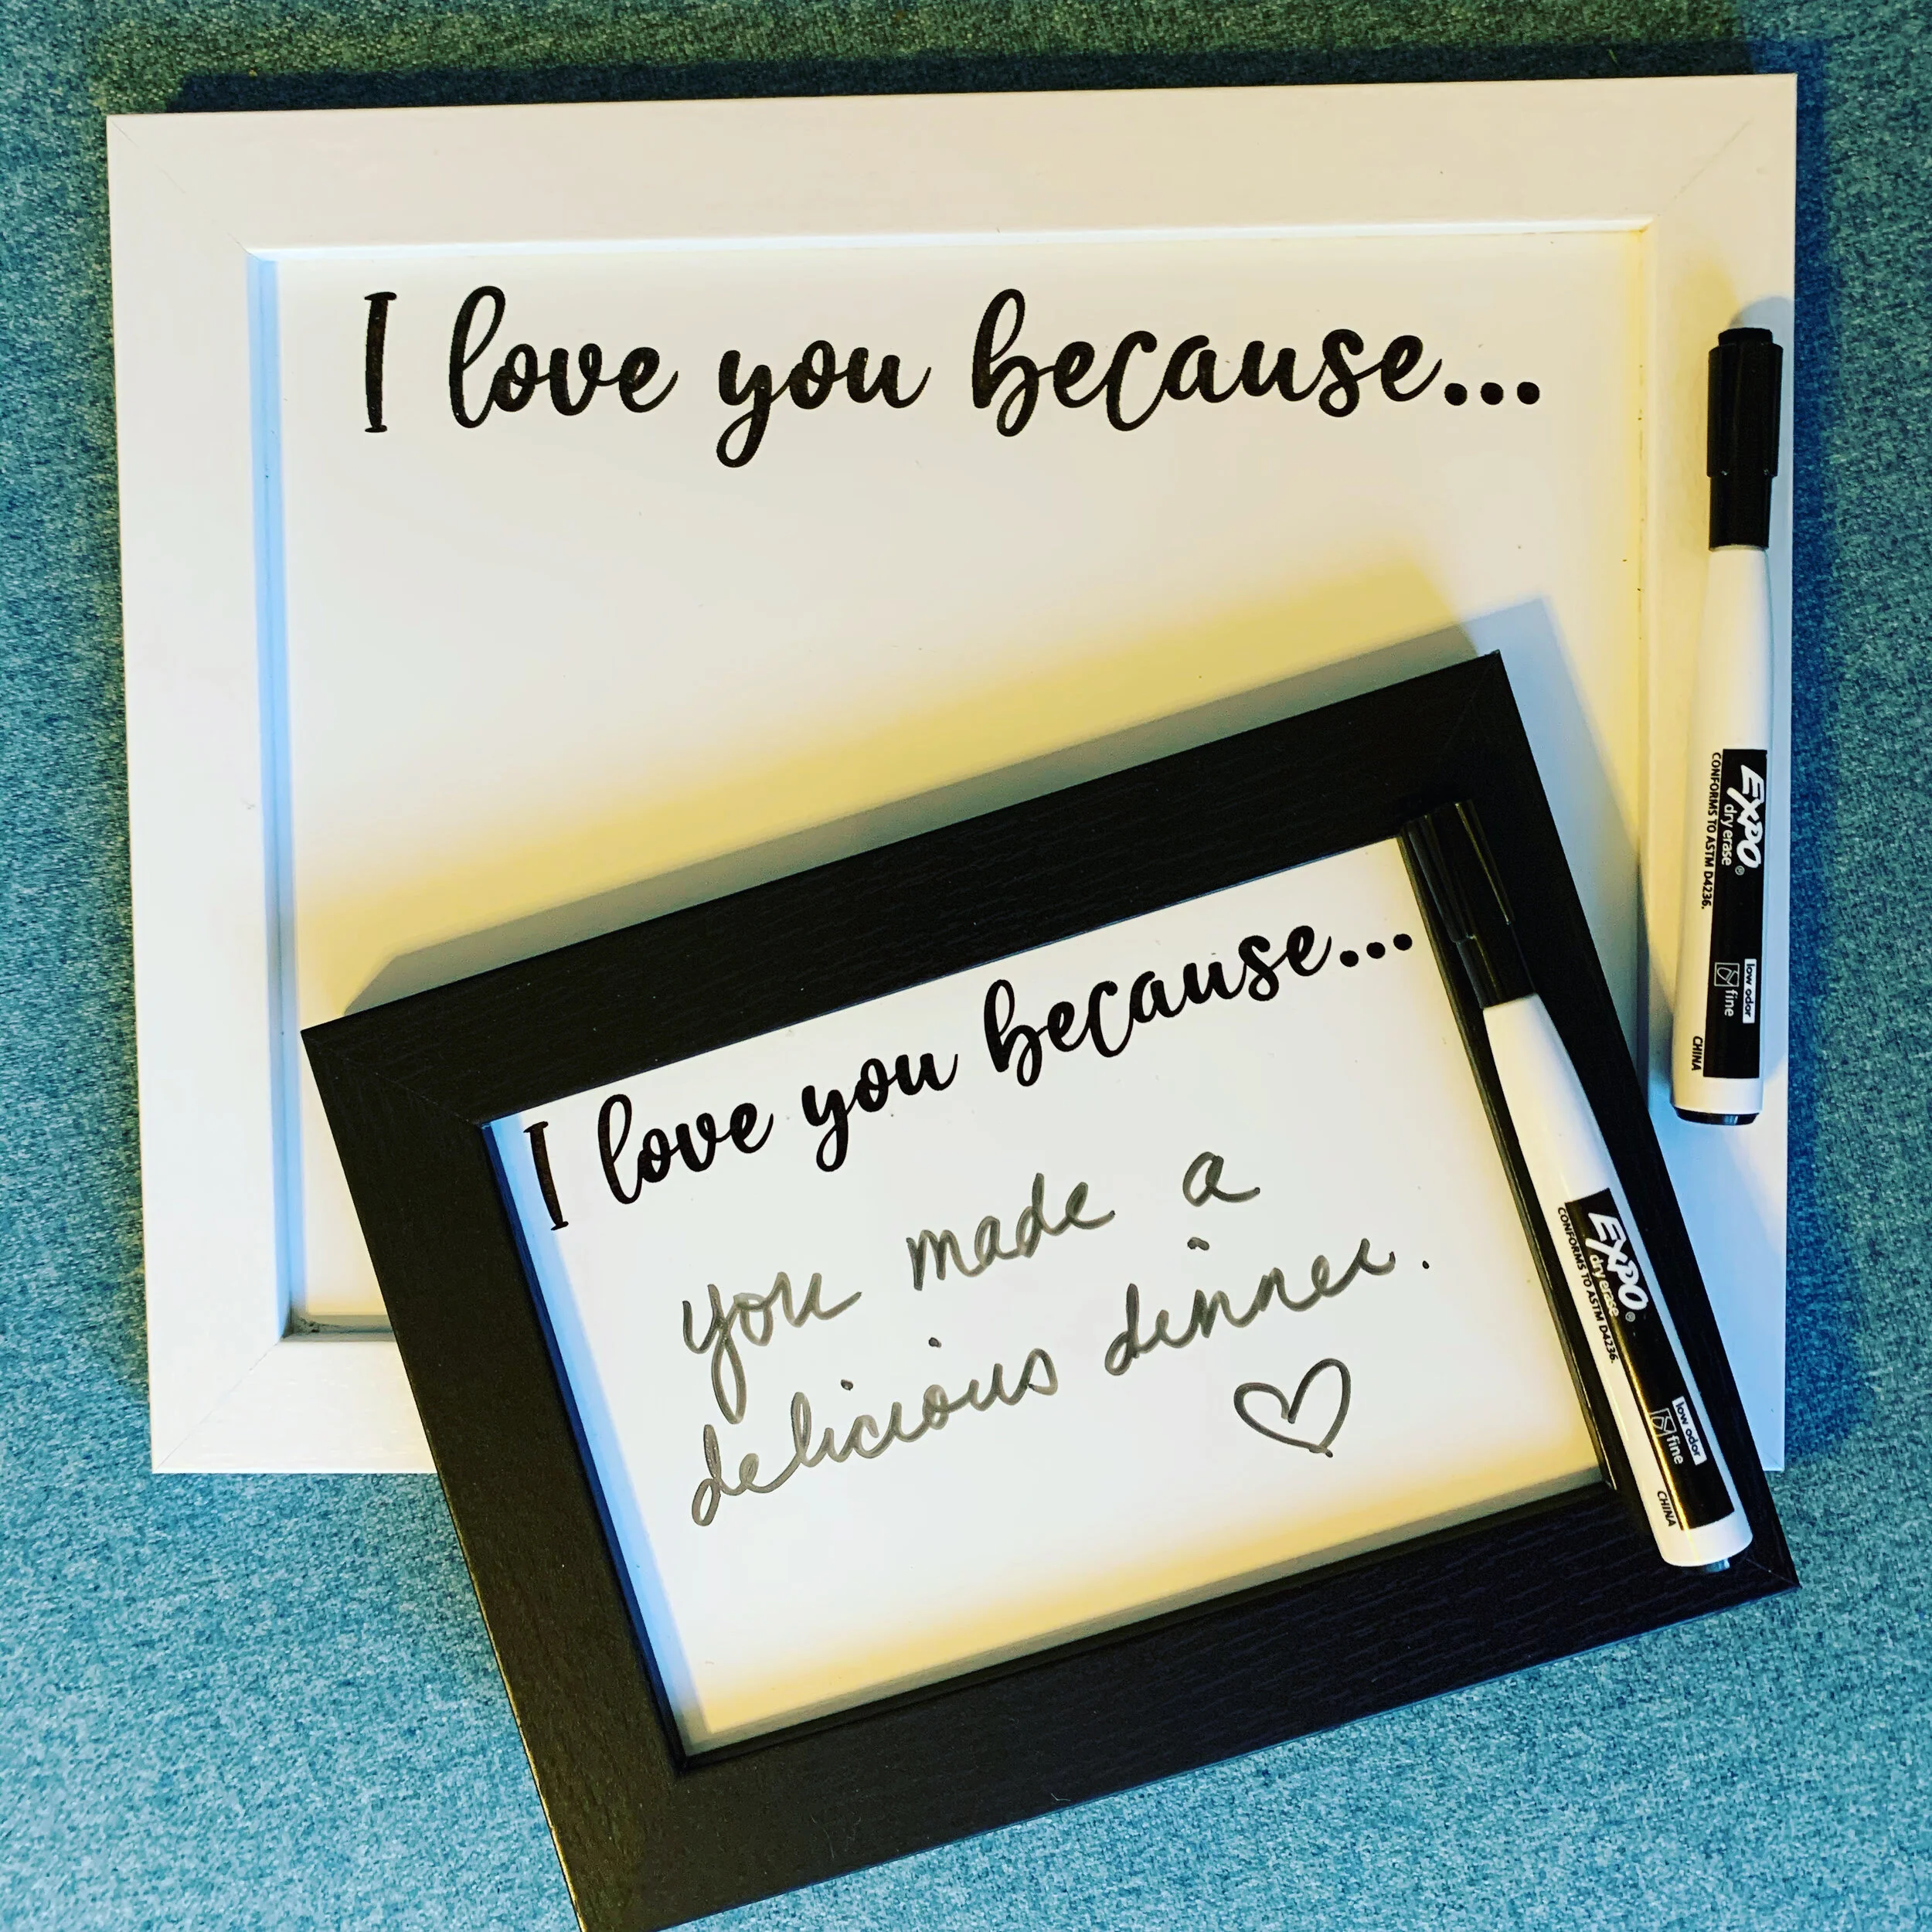 I love you because...
EXPO®
dry erase
CONFORMS TO ASTM D4236.
low odor
fine
CHINA
I love you because...
you made a
delicious dinner.
EXPO®
dry erase
CONFORMS TO ASTM D4236.
low odor
fine
CHINA